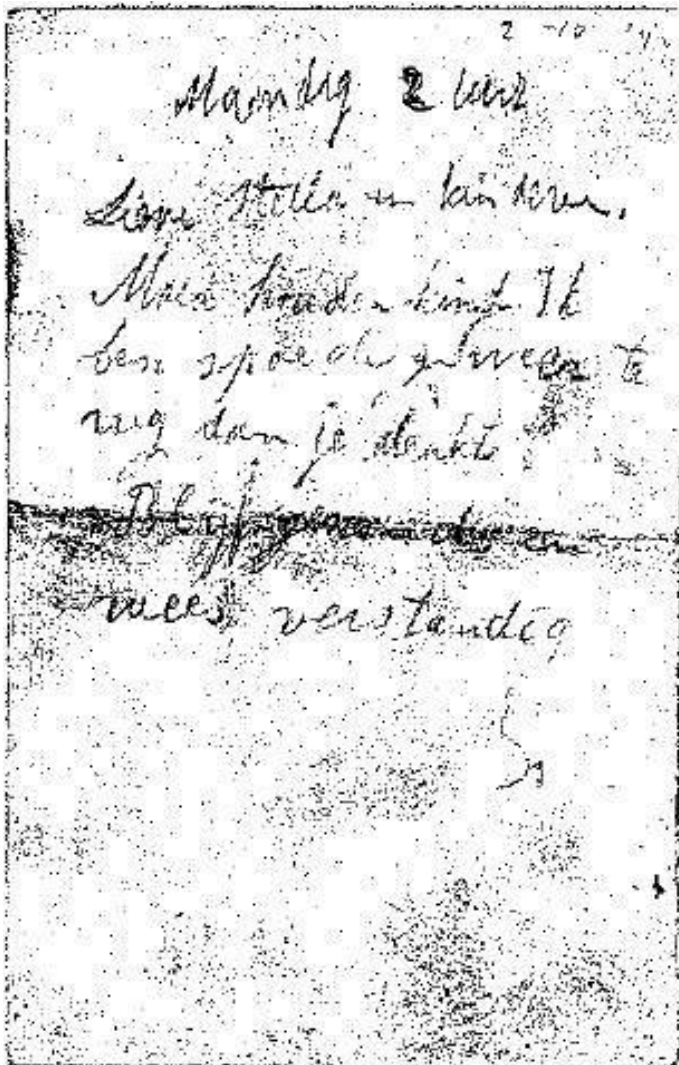 2 -10
Maandag 2 uur
Lieve en kinderen.
Moed houden kind. Ik
ben spoediger weer te
rug dan je denkt
Blijf gezond en
wees verstandig